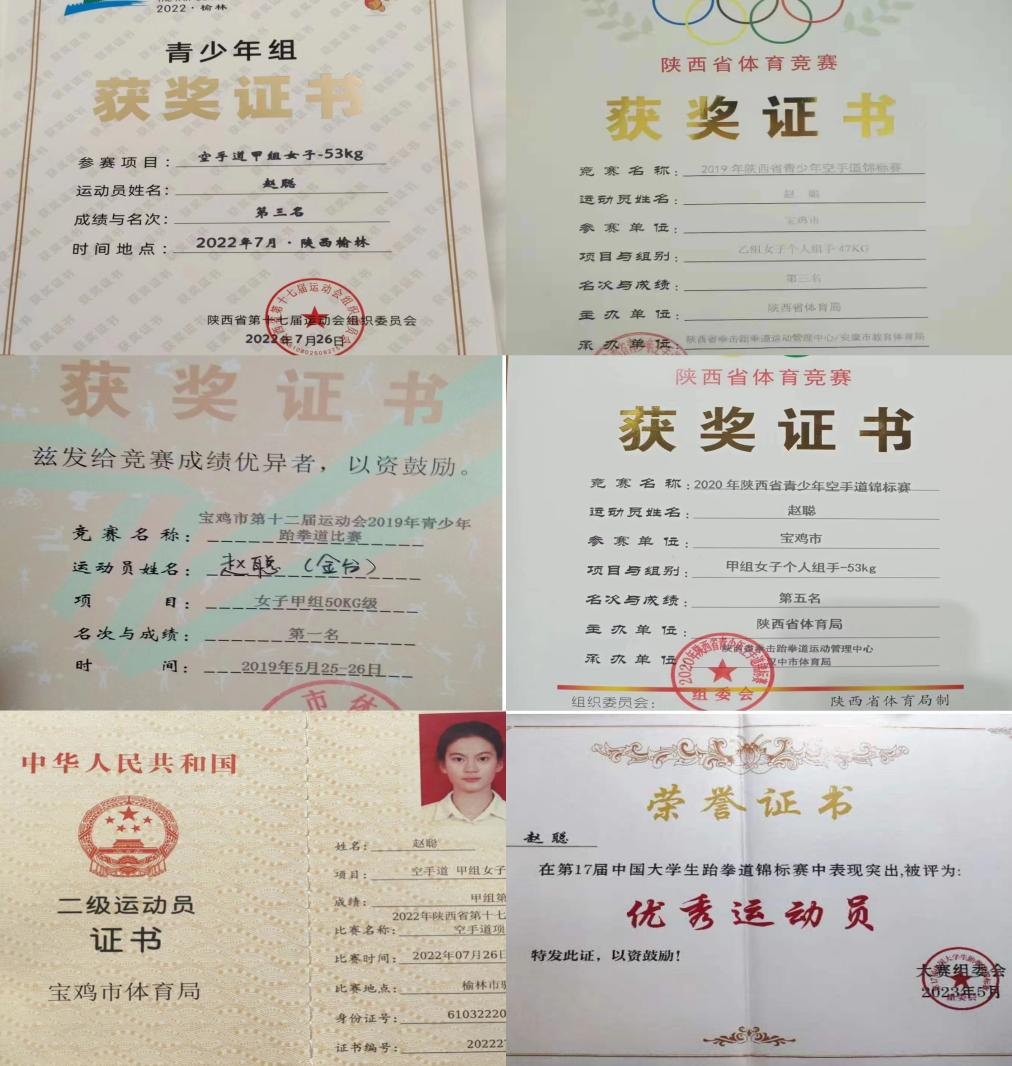 2022·榆林
青少年组
获奖证书
参赛项目：空手道甲组女子-53kg
运动员姓名：赵聪
成绩与名次：第三名
时间地点：2022年7月·陕西榆林
陕西省第十七届运动会组织委员会
2022年7月26日
陕西省体育竞赛
获奖证书
竞赛名称：2019年陕西省青少年空手道锦标赛
运动员姓名：赵聪
参赛单位：宝鸡市
项目与组别：乙组女子个人组手47KG
名次与成绩：第三名
主办单位：陕西省体育局
承办单位：陕西省拳击跆拳道运动管理中心/安康市教育体育局
获奖证书
兹发给竞赛成绩优异者，以资鼓励。
竞赛名称：宝鸡市第十二届运动会2019年青少年
跆拳道比赛
运动员姓名：赵聪（金台）
项目：女子甲组50KG级
名次与成绩：第一名
时间：2019年5月25-26日
陕西省体育竞赛
获奖证书
竞赛名称：2020年陕西省青少年空手道锦标赛
运动员姓名：赵聪
参赛单位：宝鸡市
项目与组别：甲组女子个人组手-53kg
名次与成绩：第五名
主办单位：陕西省体育局
承办单位：陕西省拳击跆拳道运动管理中心
汉中市体育局
组委会
组织委员会：
陕西省体育局制
中华人民共和国
二级运动员
证书
宝鸡市体育局
姓名：赵聪
项目：空手道 甲组女子
成绩：甲组第
2022年陕西省第十七
比赛名称：空手道项
比赛时间：2022年07月26日
比赛地点：榆林市
身份证号：61032220
证书编号：20222
荣誉证书
赵聪
在第17届中国大学生跆拳道锦标赛中表现突出,被评为:
优秀运动员
特发此证，以资鼓励！
大赛组委会
2023年5月